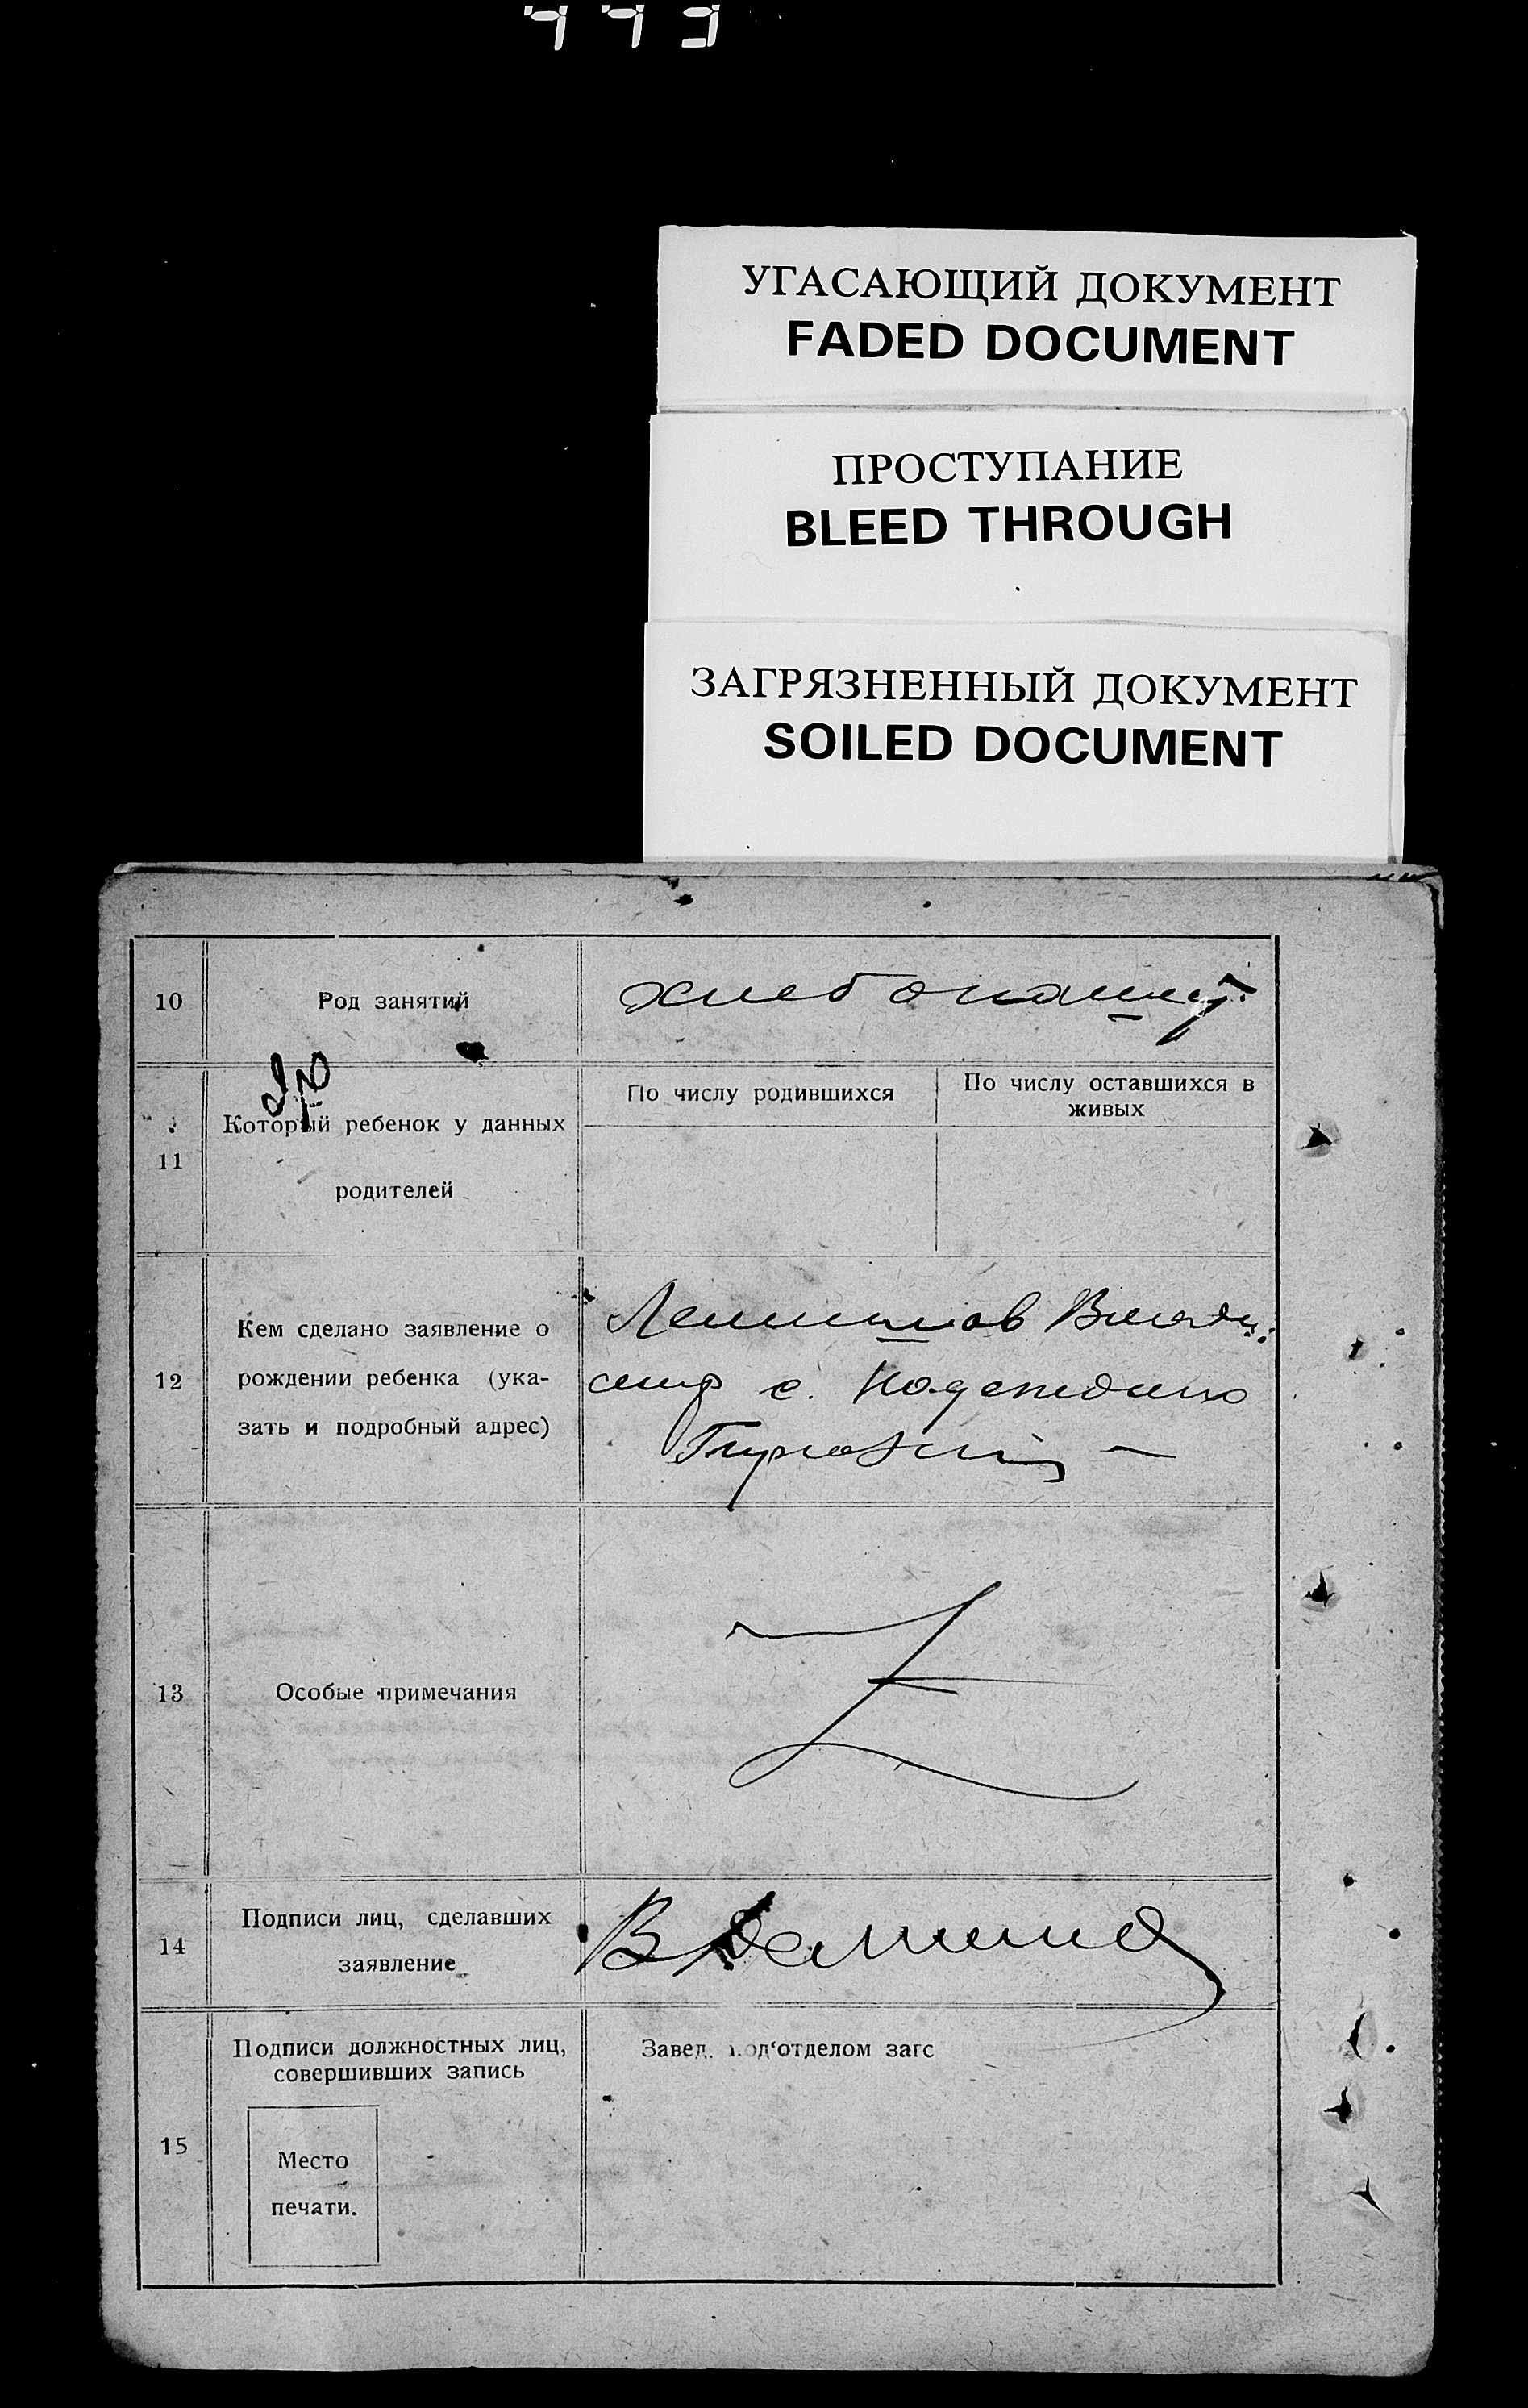 443
УГАСАЮЩИЙ ДОКУМЕНТ
FADED DOCUMENT
ПРОСТУПАНИЕ
BLEED THROUGH
ЗАГРЯЗНЕННЫЙ ДОКУМЕНТ
SOILED DOCUMENT
10
Род занятий
хлебопашец
11
Который ребенок у данных
родителей
По числу родившихся
По числу оставшихся в
живых
12
Кем сделано заявление о
рождении ребенка (ука-
зать и подробный адрес)
Влади-
мир с. Надеждино
13
Особые примечания
14
Подписи лиц, сделавших
заявление
15
Подписи должностных лиц,
совершивших запись
Место
печати.
Завед. под‘отделом загс